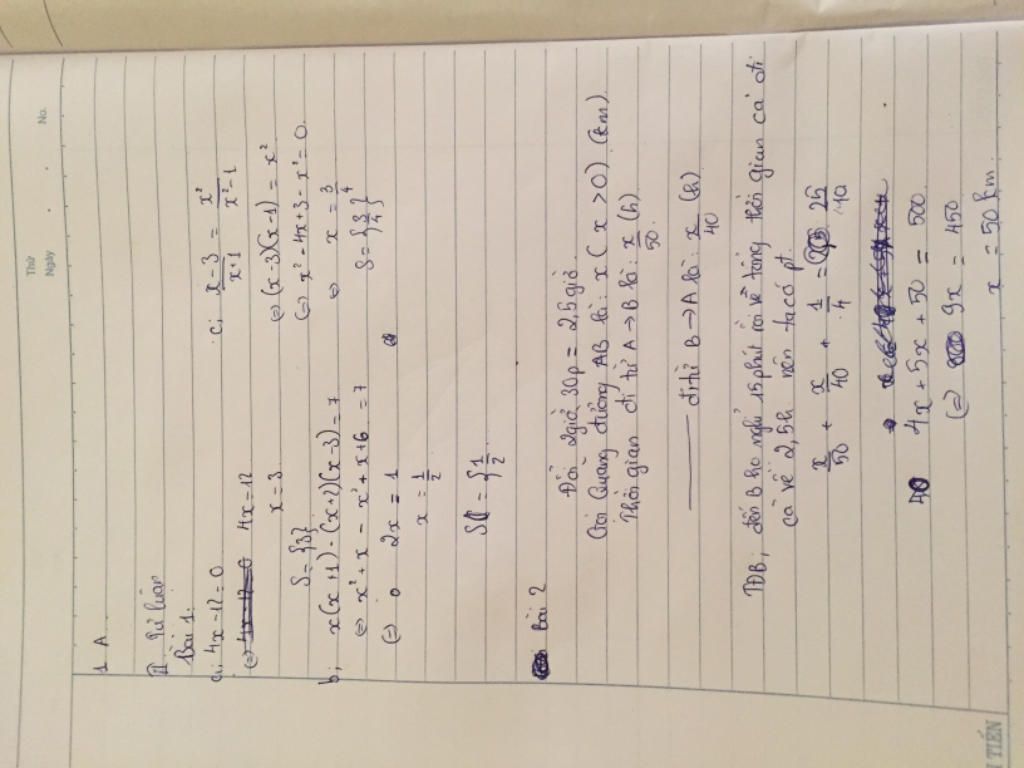 Thứ
Ngày
No.
1. A
II Tự luận
Bài 1:
a; 4x - 12 = 0
(=) 4x = 12
x = 3
S = {3}
b; x(x+1) - (x+2)(x-3) = 7
(=) x² + x - x² + x + 6 = 7
(=) 2x = 1
x = 1/2
S = {1/2
c; x-3/x+1 = x²/x²-1
(=) (x-3)(x-1) = x²
(=) x² - 4x + 3 - x² = 0
(=) x = 3/4
S = {3/4}
Bài 2
Đổi 2 giờ 30p = 2,5 giờ.
Gọi Quãng đường AB là: x (x > 0) (km)
Thời gian đi từ A → B là: x/50 (h)
đi từ B → A là: x/40 (h)
TĐB; đến B họ nghỉ 15 phút rồi về tổng thời gian cả đi
cả về 2,5h nên ta có pt
x/50 + x/40 + 1/4 = 25/10
4x + 5x + 50 = 500
(=) 9x = 450
x = 50 km.
TIẾN